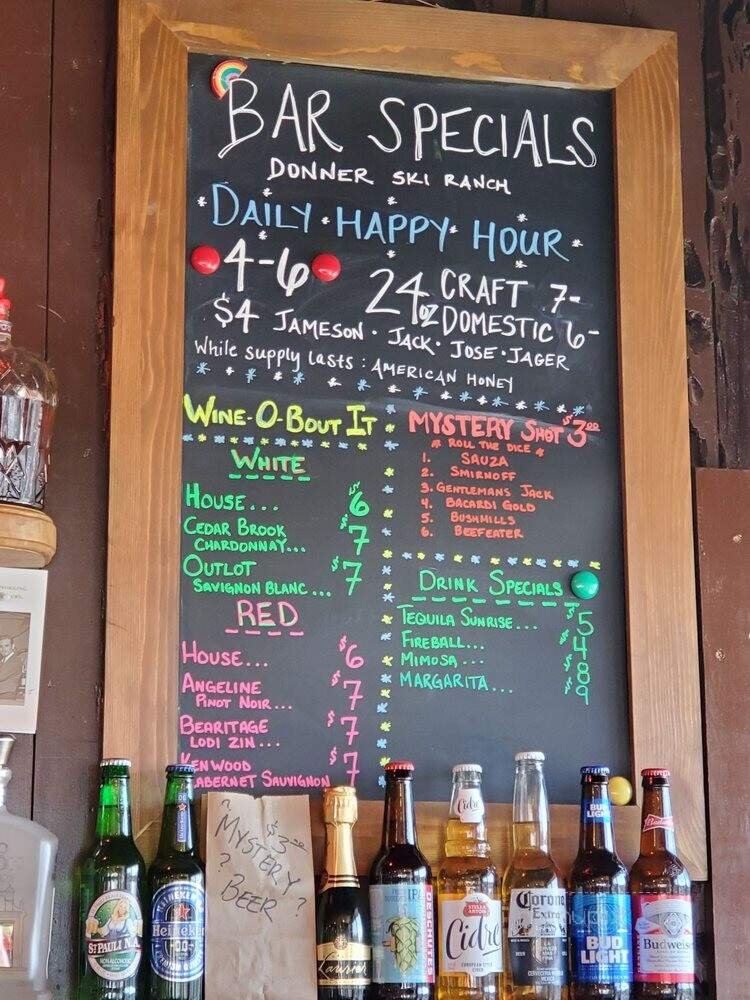 BAR SPECIALS
DONNER SKI RANCH
DAILY HAPPY HOUR
4-6
24oz CRAFT 7-
DOMESTIC 6-
$4 JAMESON · JACK · JOSE · JAGER
While supply lasts : AMERICAN HONEY
WINE-O-BOUT IT
WHITE
HOUSE... $6
CEDAR BROOK
CHARDONNAY... $7
OUTLOT
SAVIGNON BLANC... $7
RED
HOUSE... $6
ANGELINE
PINOT NOIR... $7
BEARITAGE
LODI ZIN... $7
KENWOOD
CABERNET SAUVIGNON $7
MYSTERY SHOT $3.00
* ROLL THE DICE *
1. SAUZA
2. SMIRNOFF
3. GENTLEMANS JACK
4. BACARDI GOLD
5. BUSHMILLS
6. BEEFEATER
DRINK SPECIALS
TEQUILA SUNRISE... $5
FIREBALL... $4
MIMOSA... $8
MARGARITA... $9
ST PAULI N.A.
NON ALCOHOLIC
HEINEKEN
Heineken
0.0
? $3.00
MYSTERY
? BEER ?
IPA
DESCHUTES
Cidre
STELLA ARTOIS
Cidre
EUROPEAN STYLE
CIDER
Corona
Extra
BUD
LIGHT
BUD
LIGHT
Budweiser